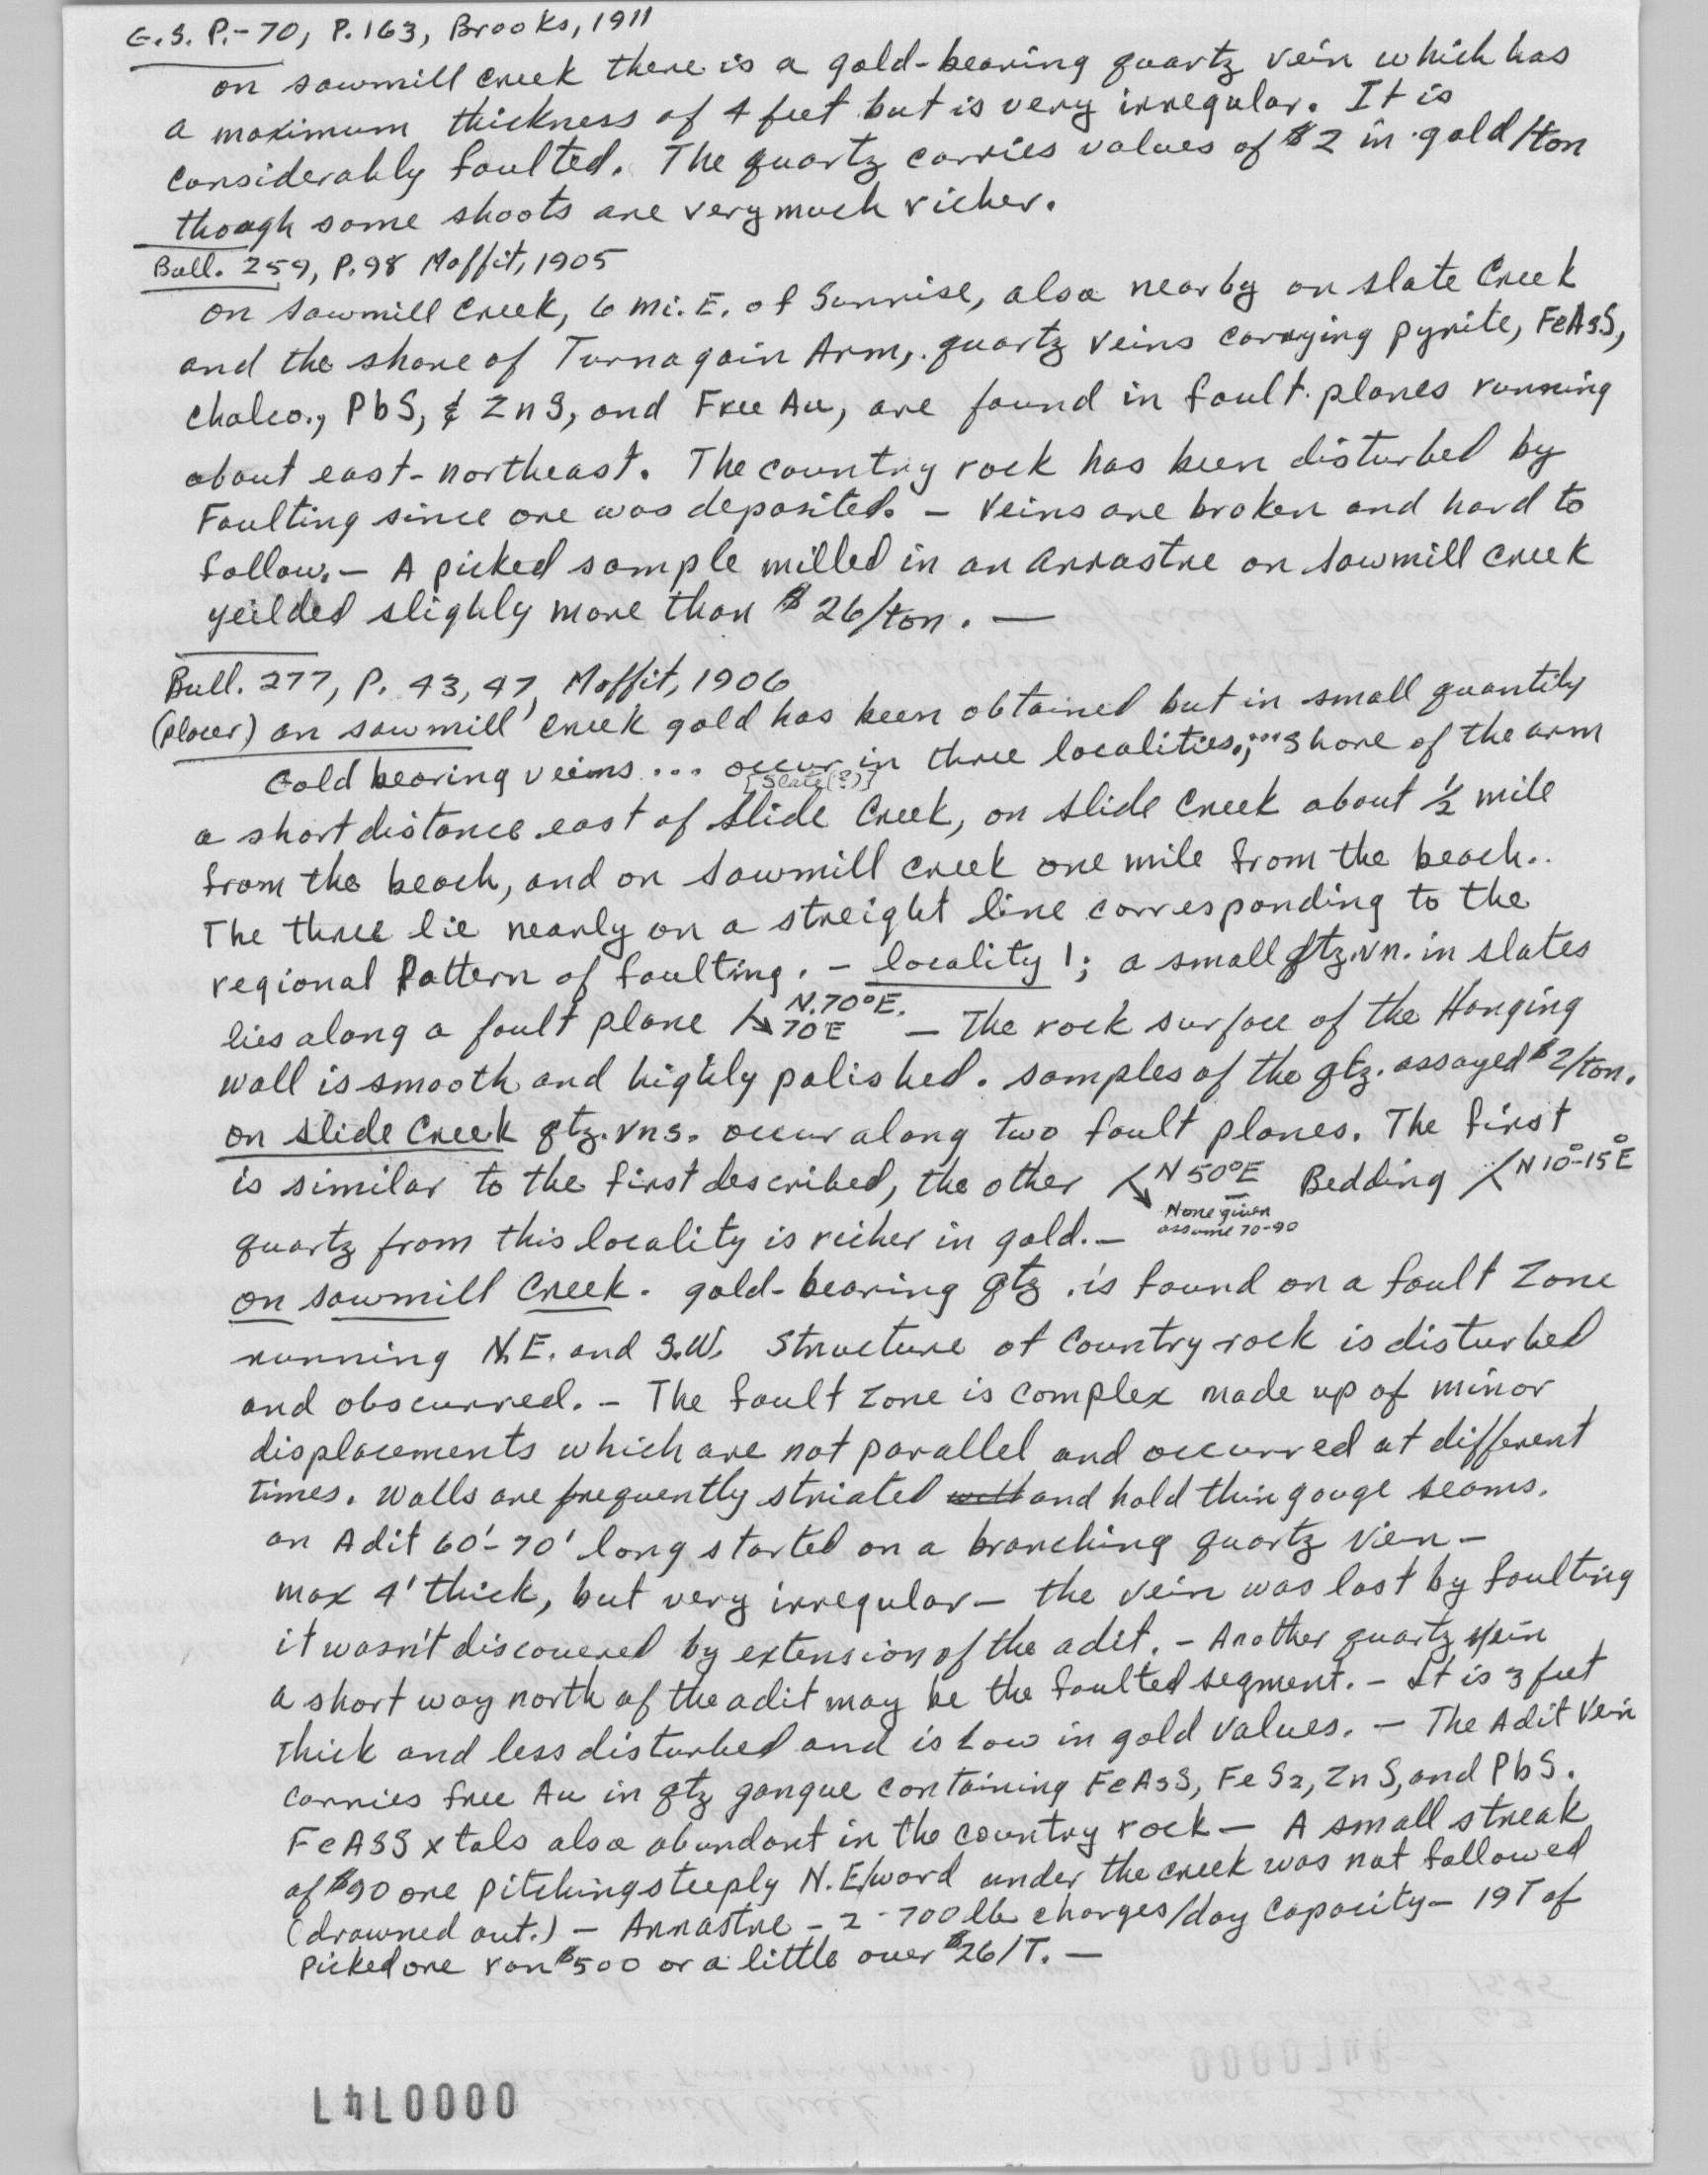 G.S. P.-70, P.163, Brooks, 1911
on sawmill creek there is a gold-bearing quartz vein which has
a maximum thickness of 4 feet but is very irregular. It is
considerably faulted. The quartz carries values of $2 in gold/ton
though some shoots are very much richer.
Bull. 259, P.98 Moffit, 1905
on sawmill creek, 6 mi. E. of Sunrise, also nearby on slate Creek
and the shore of Turnagain Arm, quartz veins carrying pyrite, FeAsS,
chalco., PbS, & ZnS, and Free Au, are found in fault planes running
about east-northeast. The country rock has been disturbed by
Faulting since ore was deposited. – Veins are broken and hard to
follow. – A picked sample milled in an arrastre on sawmill creek
yeilded slighly more than $26/ton. —
Bull. 277, P. 43, 47, Moffit, 1906
(placer) on sawmill creek gold has been obtained but in small quantity
Gold bearing veins ... occur in three localities.;... shore of the arm
[Slate(?)]
a short distance east of slide Creek, on slide creek about ½ mile
from the beach, and on sawmill creek one mile from the beach..
The three lie nearly on a streight line corresponding to the
regional Pattern of faulting. – locality 1; a small qtz.vn. in slates
lies along a fault plane N.70°E. 70°E – The rock surface of the Hanging
wall is smooth and highly polished. samples of the qtz. assayed $2/ton.
on slide Creek qtz. vns. occur along two fault planes. The first
is similar to the first described, the other N 50°E Bedding N 10°-15°E
None given
assume 70-90
quartz from this locality is richer in gold. –
on sawmill Creek. gold-bearing qtz. is found on a fault Zone
running N.E. and S.W. Structure of Country rock is disturbed
and obscurred. – The fault Zone is complex made up of minor
displacements which are not parallel and occurred at different
times. Walls are frequently striated well and hold thin gouge seams.
an Adit 60'-70' long started on a branching quartz vien –
max 4' thick, but very irregular – the vein was lost by faulting
it wasn't discovered by extension of the adit. – Another quartz vein
a short way north of the adit may be the faulted segment. – It is 3 feet
thick and less disturbed and is Low in gold values. – The Adit Vein
carries free Au in qtz gangue containing FeAsS, FeS2, ZnS, and PbS.
FeASS xtals also abundant in the country rock – A small streak
of $90 ore pitching steeply N.E/ward under the creek was not followed
(drowned out.) – Arrastre – 2-700 lb charges/day Capacity – 19T of
Picked ore ran $500 or a little over $26/T. –
0000747